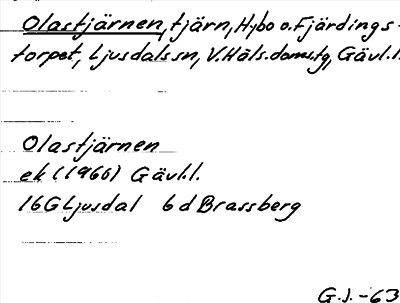 Olastjärnen, tjärn, Hybo o. Fjärdings-
torpet, Ljusdals sn, V. Häls. doms.tg, Gävl.l.
Olastjärnen
ek (1966) Gävl.l.
16G Ljusdal 6 d Brassberg
G.J. -63